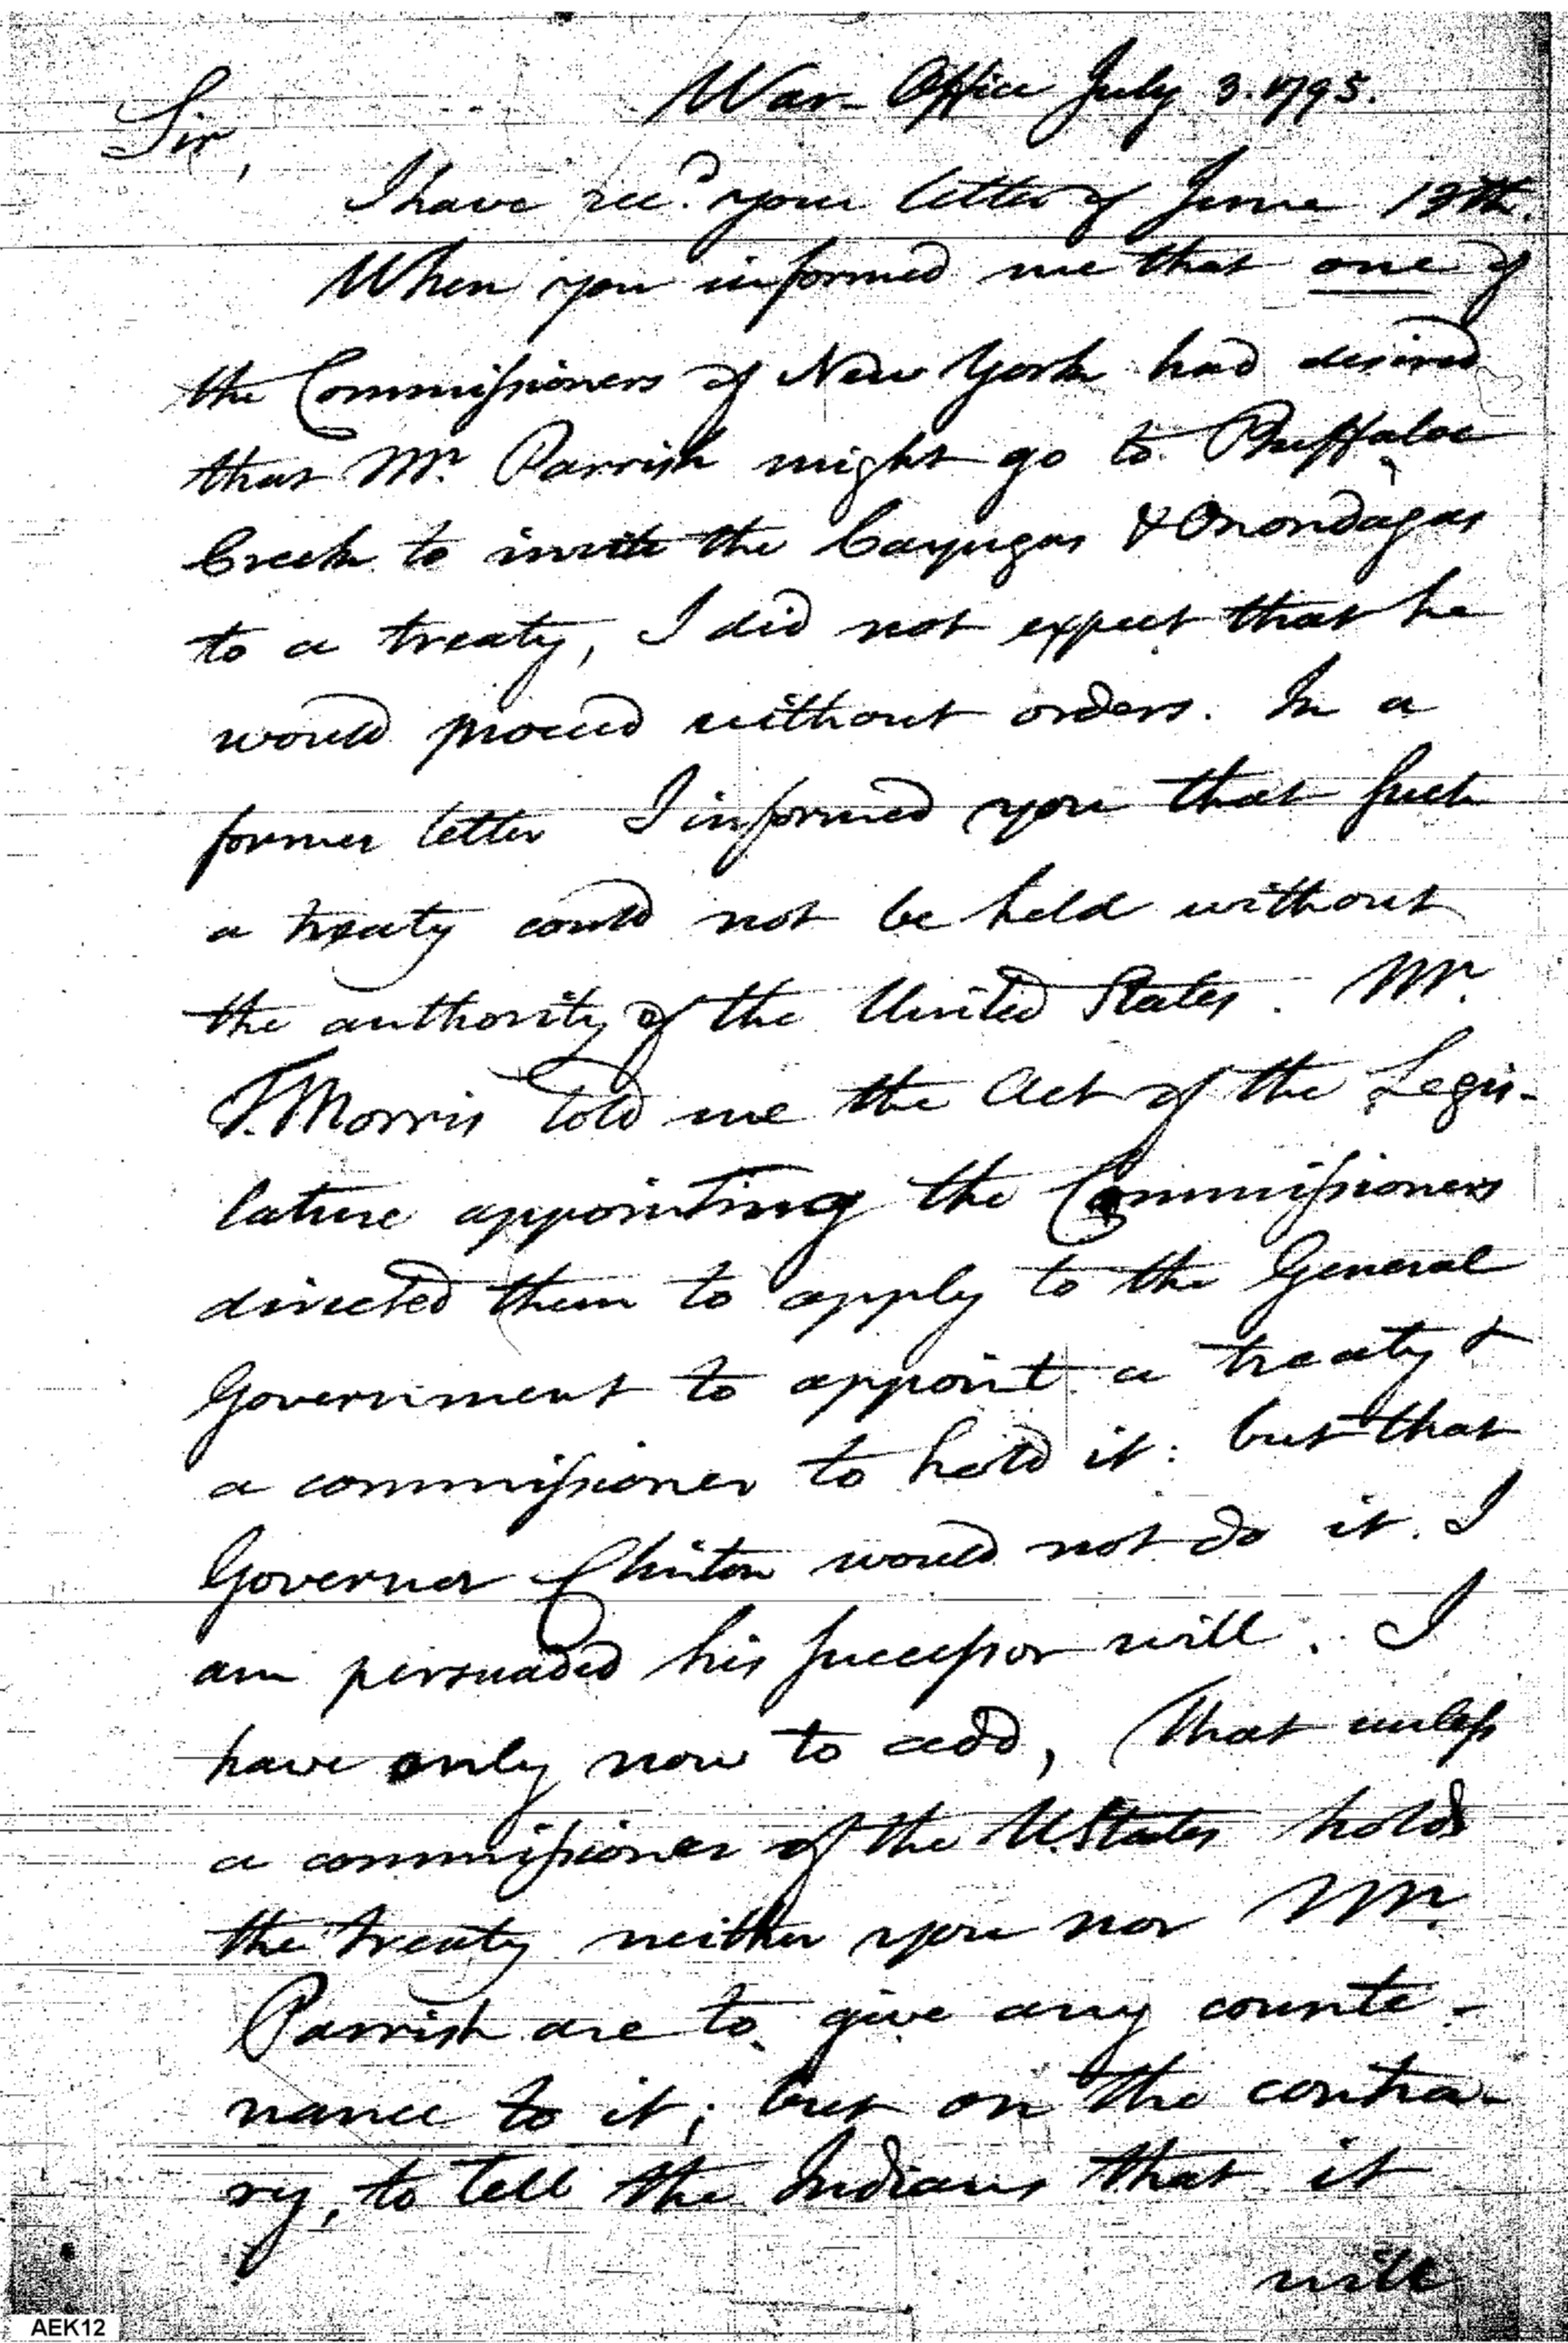 War Office July 3. 1795.
Sir,
I have rec.d your letter of June 13th.
When you informed me that one of
the Commissioners of New York had desired
that Mr. Parrish might go to Buffaloe
Creek to invite the Cayugas & Onondagas
to a treaty, I did not expect that he
would proceed without orders. In a
former letter I informed you that such
a treaty could not be held without
the authority of the United States. Mr.
T. Morris told me the Act of the Legis-
lature appointing the Commissioners
directed them to apply to the General
Government to appoint a treaty &
a commissioner to hold it: but that
Governor Clinton would not do it. I
am persuaded his successor will. I
have only now to add, that unless
a commissioner of the U. States holds
the treaty neither you nor Mr.
Parrish are to give any counte-
nance to it; but on the contra-
ry, to tell the Indians that it
will
AEK12